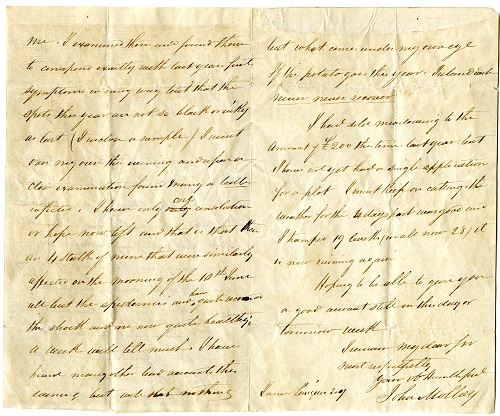 me. I examined them and found them
to correspond exactly with last years first
symptoms in every way but that the
spots this year are not so black or inky
as last (I enclose a sample) I went
over my own the evening and upon a
close examination found many a leable
infected. I have only one consolation
or hope now left and that is that there
are 4 stalks of mine that were similarly
affected on the morning of the 10th June
all but the epidermis and have quite
the shock and are now quite healthy.
a week will tell much. I have
heard many other bad accounts this
evening but will that nothing
but what come under my own eye
If the potato goes this year. Ireland will
never never recover
I had sold meadowing to the
amount of £200 this time last year but
I have not yet had a single application
for a plot I must keep on cutting the
weather for the 4 days past was good and
I tramped 19 cocks in all now 25 / it
is now raining again
Hoping to be able to give you
a good account still on this day or
tomorrow week
I remain my dear sir
most respectfully
your obt Humble servt
John Molloy
James